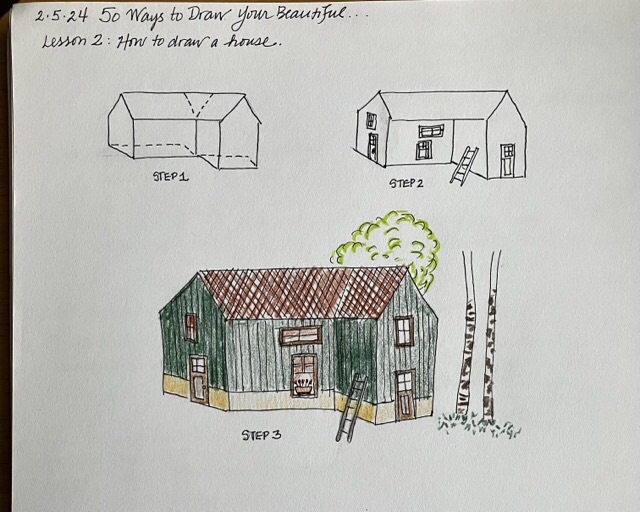 2.5.24 50 Ways to Draw Your Beautiful...
Lesson 2: How to draw a house.
STEP 1
STEP 2
STEP 3